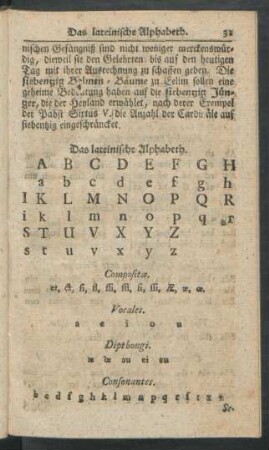 Das lateinische Alphabeth. 31
nischen Gefängniß sind nicht weniger merckenswür-
dig, dieweil sie den Gelehrten bis auf den heutigen
Tag mit ihrer Ausrechnung zu schaffen geben. Die
siebentzig Palmen-Bäume zu Eelim sollen eine
geheime Bedeutung haben auf die siebentzig Jün-
ger, die der Heyland erwählet, nach derer Exempel
der Pabst Sixtus V. die Anzahl der Cardinäle auf
siebentzig eingeschräncket.
Das lateinische Alphabeth.
A B C D E F G H
a b c d e f g h
I K L M N O P Q R
i k l m n o p q r
S T U V X Y Z
s t u v x y z
Compositæ.
Æ, æ, œ.
Vocales.
a e i o u
Dipthongi.
æ œ au ei eu
Consonantes.
b c d f g h k l m n p q r s t z x